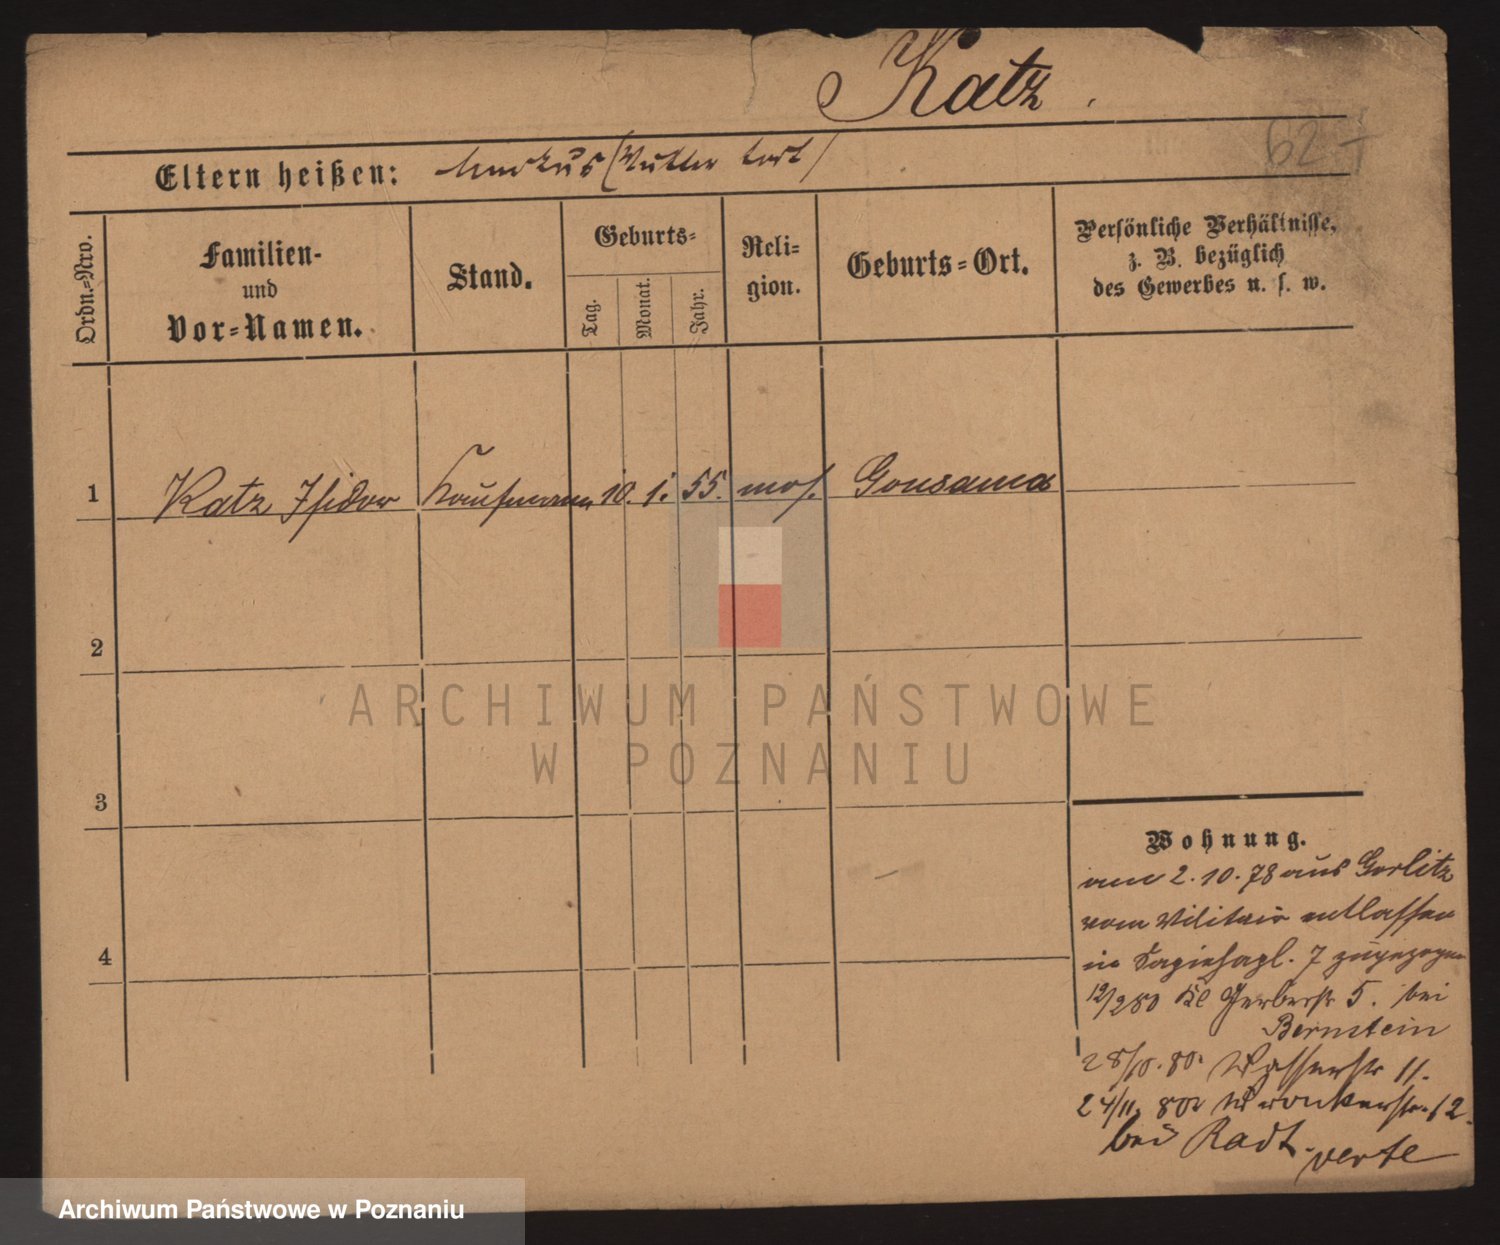 Katz.
627
Eltern heißen: Markus (Mutter tot)
Ordn.=Nro.
Familien-
und
Vor=Namen.
Stand.
Geburts=
Tag.
Monat.
Jahr.
Reli=
gion.
Geburts=Ort.
Persönliche Verhältnisse,
z. B. bezüglich
des Gewerbes u. s. w.
1 Katz Isidor Kaufmann 10. 1. 55. mos.
2
3
4
Wohnung.
am 2. 10. 78 aus Gorlitz
vom Militair entlassen
in 7 zugezogen
12/2 80 Kl Gerberstr 5. bei
Bernstein
28/10. 80. Wasserstr 11.
24/11. 80 Wronkerstr. 12.
bei Radt. verte
ARCHIWUM PAŃSTWOWE
W POZNANIU
Archiwum Państwowe w Poznaniu